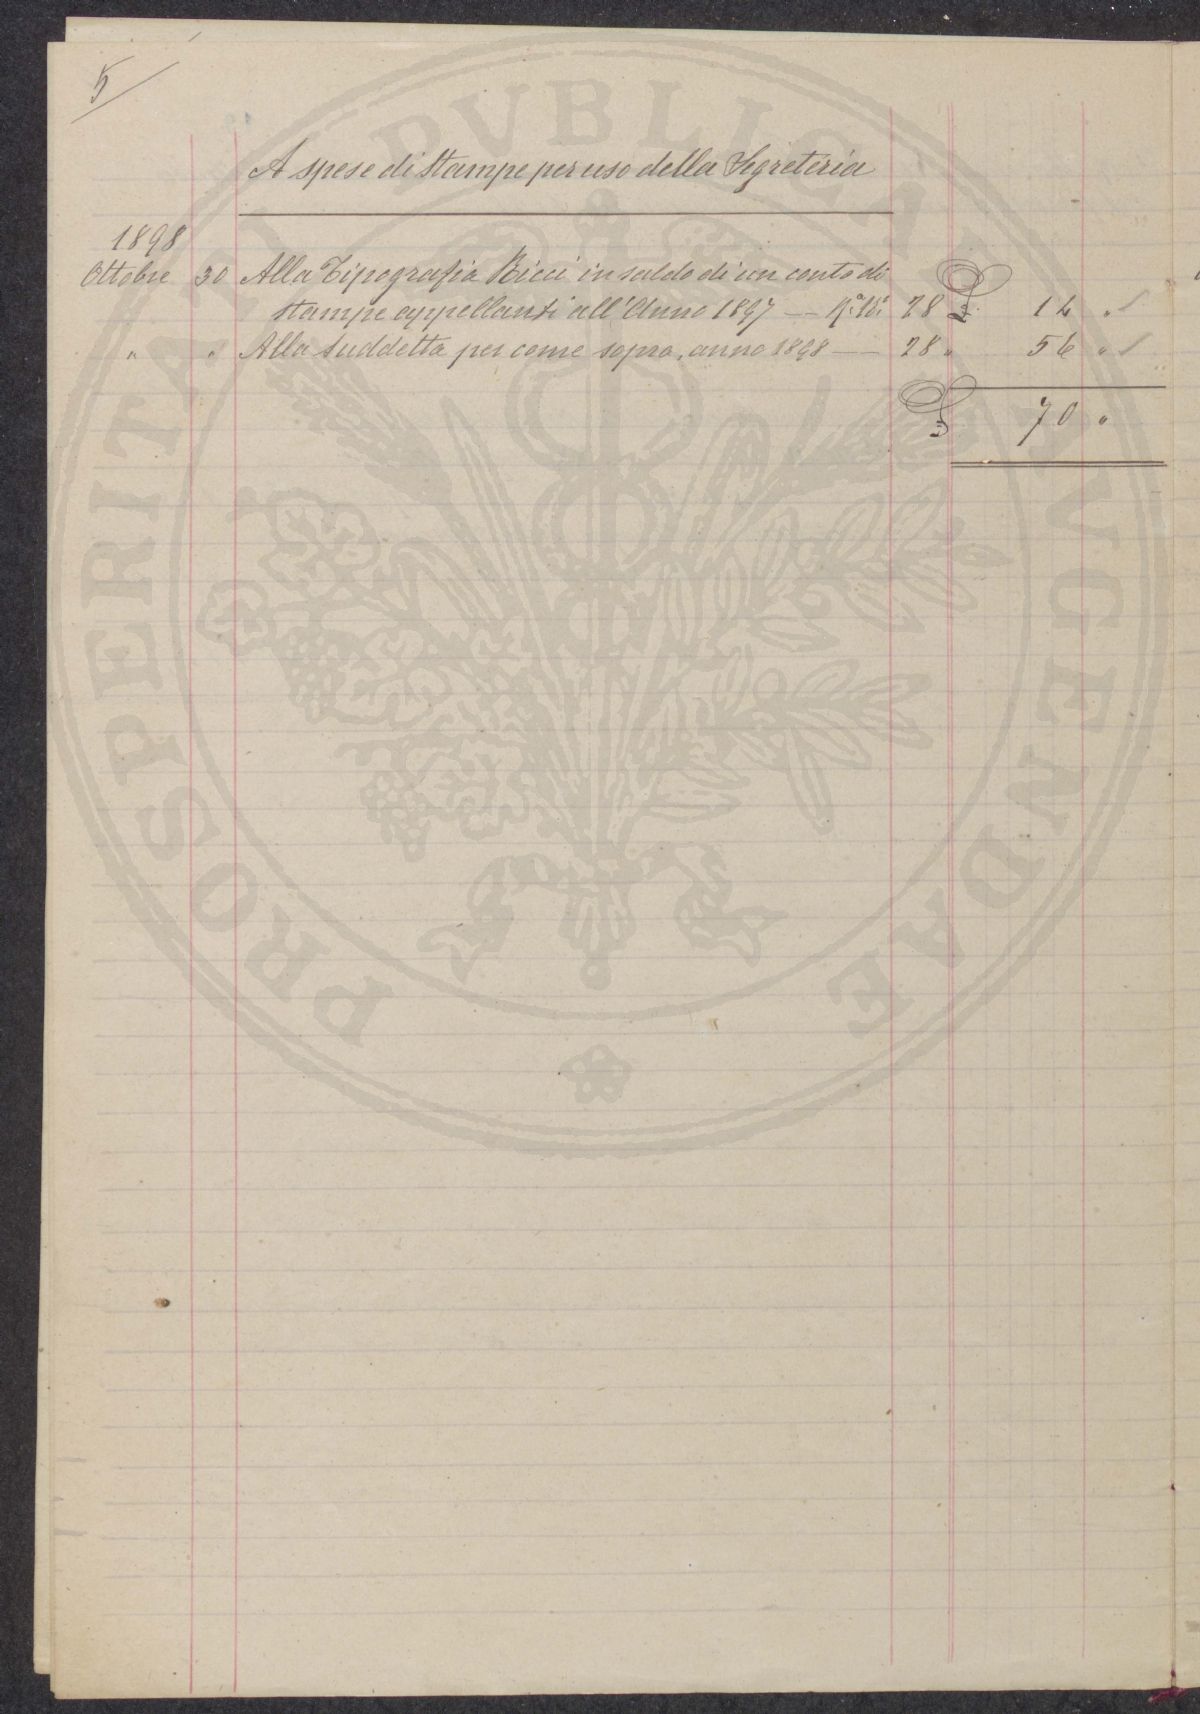 5
A spese di stampe per uso della Segreteria
1898
Ottobre 30 Alla Tipografia Ricci in saldo di un conto di
stampe appellanti all'Anno 1897 — 28 £ 14 "
" " Alla suddetta per come sopra, anno 1898 — 28 " 56 "
£ 70 "
PROSPERITATI PVBLICAE AVGENDAE